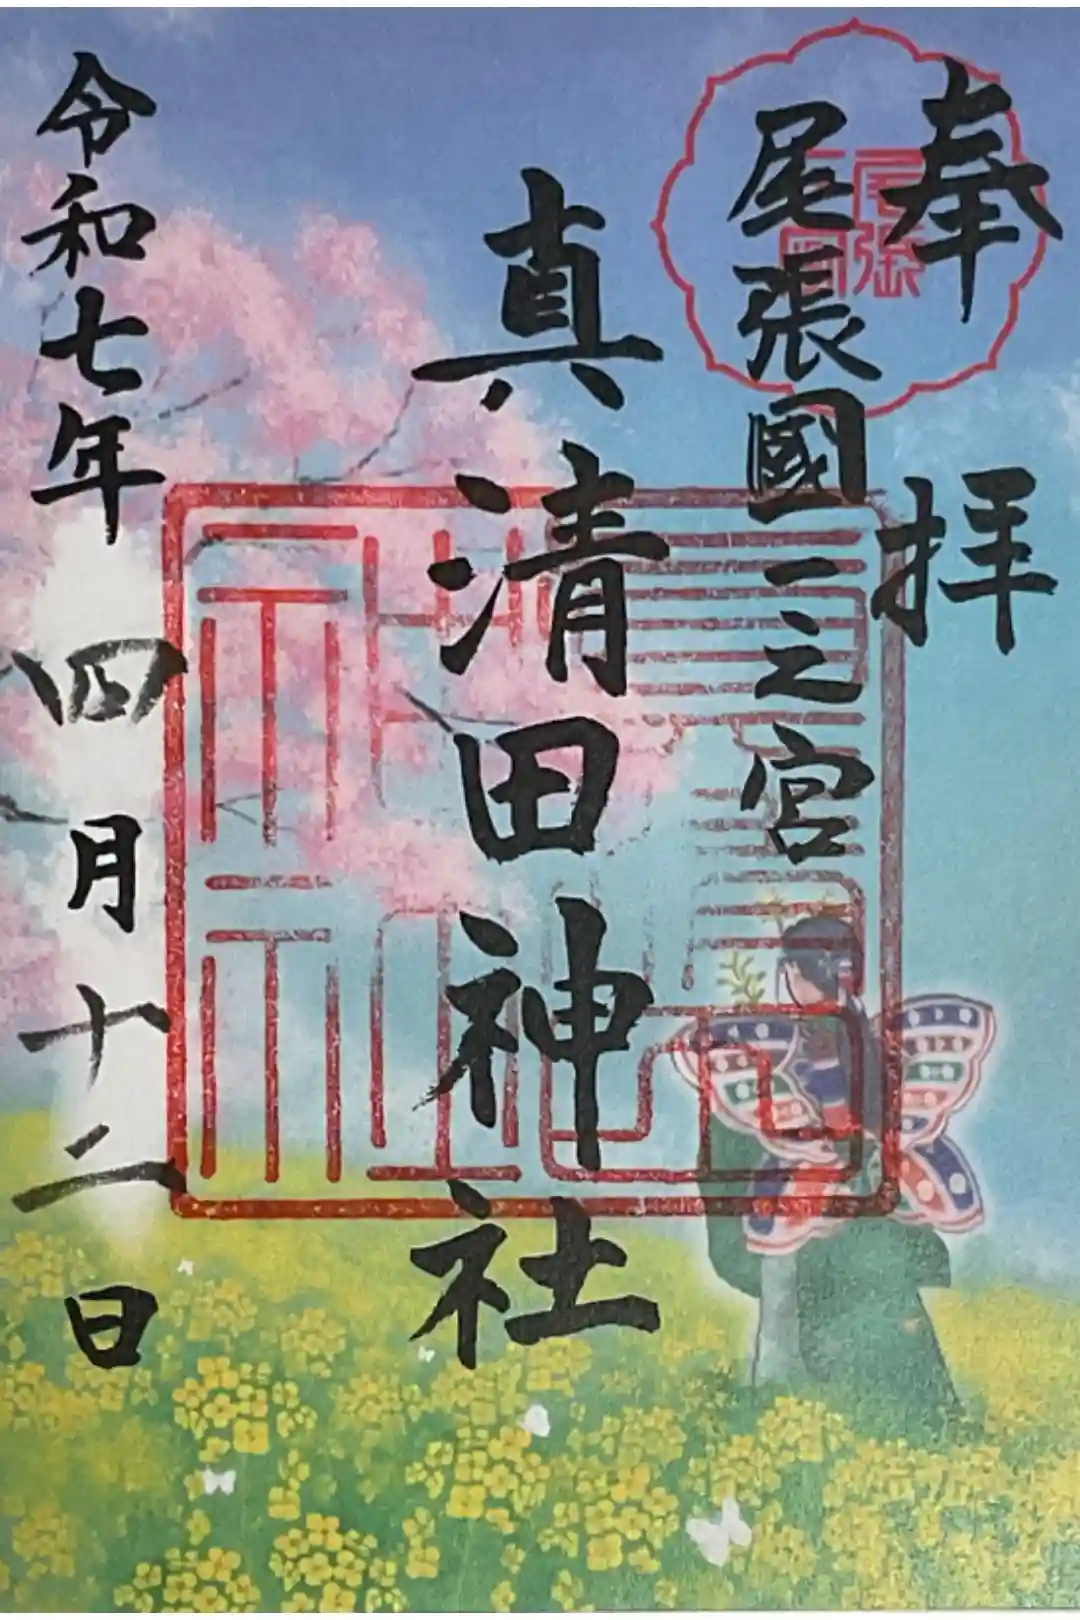 奉拝
尾張國一之宮
真清田神社
令和七年四月十二日
尾張